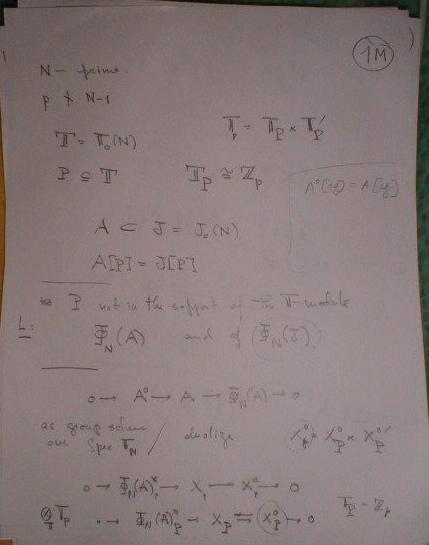 1M
N - prime.
p ∤ N-1
𝕋 = 𝕋₀(N)
𝕋_p = 𝕋_P × 𝕋'_P
P ⊆ 𝕋
𝕋_P ≅ ℤ_p
A ⊂ J = J₀(N)
A[P] = J[P]
P not in the support of the 𝕋-module
L:
Φ_N(A) and of (Φ_N(J))
0 → A⁰ → A → Φ_N(A) → 0
as group schem
over Spec / dualize
X⁰_p = X⁰_P × X⁰'_P
0 → Φ_N(A)*_p → X_p → X⁰_p → 0
⊗ 𝕋_P 0 → Φ_N(A)*_P → X_P ⇆ X⁰_P → 0
𝕋_P = ℤ_p